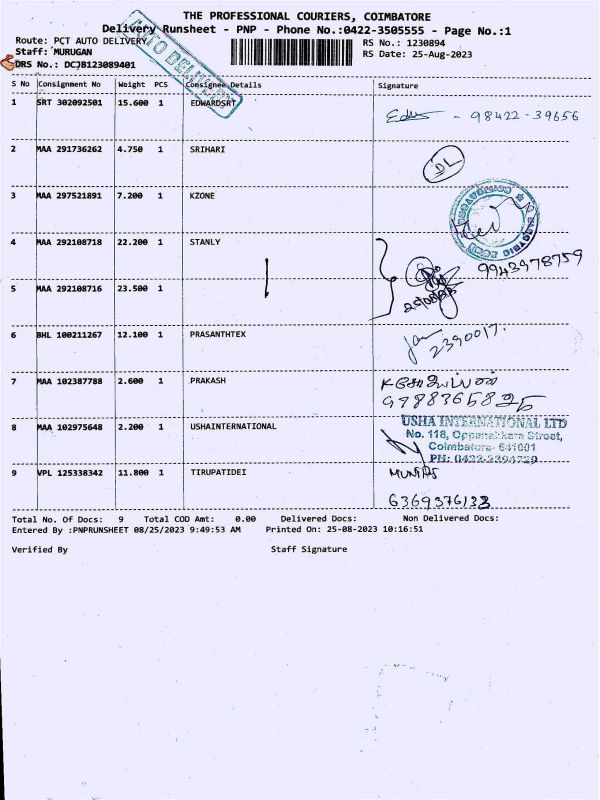 THE PROFESSIONAL COURIERS, COIMBATORE
Delivery Runsheet - PNP - Phone No.:0422-3505555 - Page No.:1
Route: PCT AUTO DELIVERY
RS No.: 1230894
Staff: MURUGAN
RS Date: 25-Aug-2023
DRS No.: DCJB123089401
AUTO DELIVERY
S No Consignment No Weight PCS Consignee Details Signature
1 SRT 302092501 15.600 1 EDWARDSRT - 98422-39656
2 MAA 291736262 4.750 1 SRIHARI DL
3 MAA 297521891 7.200 1 KZONE
4 MAA 292108718 22.200 1 STANLY
9943978759
5 MAA 292108716 23.500 1
6 BHL 100211267 12.100 1 PRASANTHTEX
2390017.
7 MAA 102387788 2.600 1 PRAKASH
9788365825
8 MAA 102975648 2.200 1 USHAINTERNATIONAL
USHA INTERNATIONAL LTD
No. 118, Oppanakkara Street,
Coimbatore- 641001
PH: 0422-2394720
9 VPL 125338342 11.800 1 TIRUPATIDEI
6369376133
Total No. Of Docs: 9 Total COD Amt: 0.00 Delivered Docs: Non Delivered Docs:
Entered By :PNPRUNSHEET 08/25/2023 9:49:53 AM Printed On: 25-08-2023 10:16:51
Verified By Staff Signature